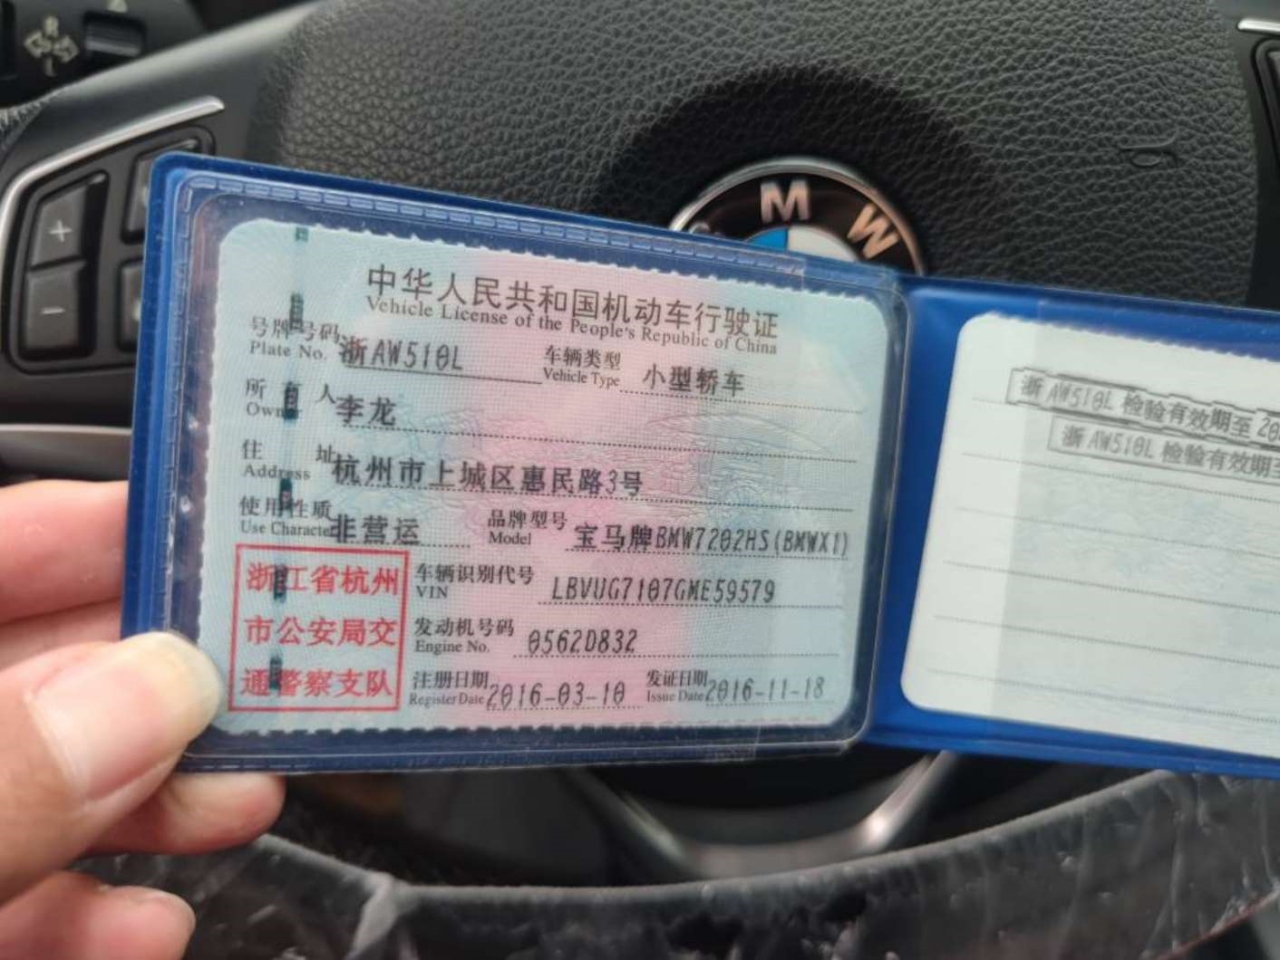 M W
+
−
中华人民共和国机动车行驶证
Vehicle License of the People's Republic of China
号牌号码 浙AW510L 车辆类型 小型轿车
Plate No. Vehicle Type
所有人 李龙
Owner
住址 杭州市上城区惠民路3号
Address
使用性质 非营运 品牌型号 宝马牌BMW7202HS(BMWX1)
Use Character Model
浙江省杭州
市公安局交
通警察支队
车辆识别代号 LBVUG7107GME59579
VIN
发动机号码 0562D832
Engine No.
注册日期 2016-03-10 发证日期 2016-11-18
Register Date Issue Date
浙AW510L 检验有效期至 20
浙AW510L 检验有效期至